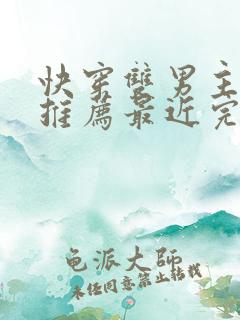 快穿雙男主
推薦最近完
龟派大师
未经同意禁止转载